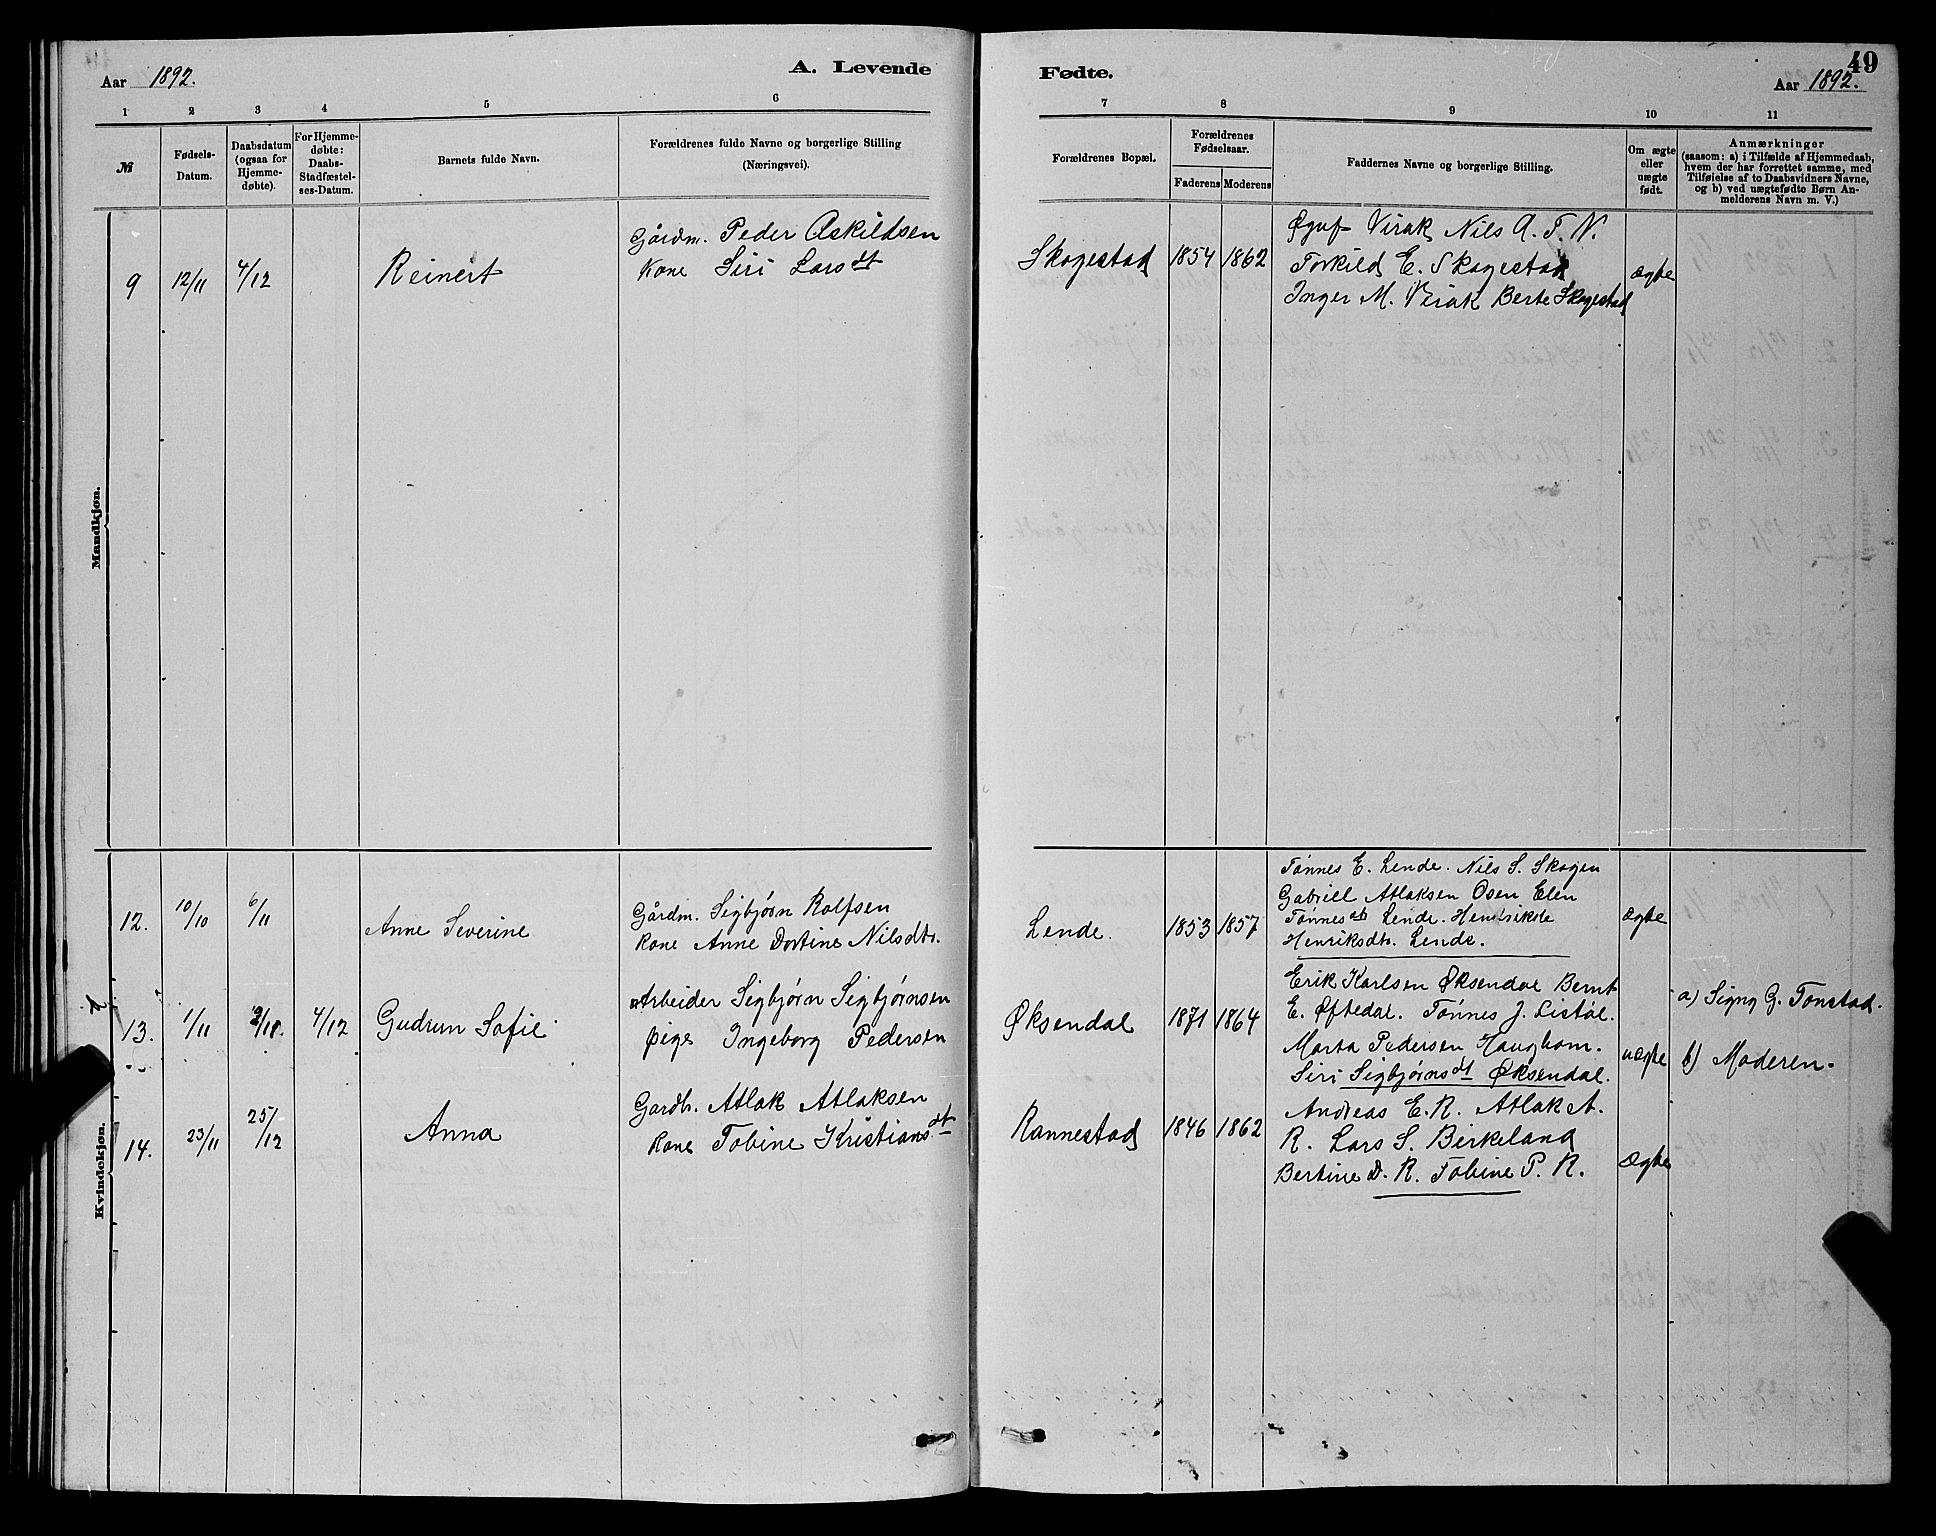 Aar 1892.
A. Levende
Fødte.
49
Aar 1892.
1 2 3 4 5 6 7 8 9 10 11
№
Fødsels-
Datum.
Daabsdatum
(ogsaa for
Hjemme-
døbte).
For Hjemme-
døbte:
Daabs-
Stadfæstel-
ses-Datum.
Barnets fulde Navn.
Forældrenes fulde Navne og borgerlige Stilling
(Næringsvei).
Forældrenes Bopæl.
Forældrenes
Fødselsaar.
Faderens Moderens
Faddernes Navne og borgerlige Stilling.
Om ægte
eller
uægte
født.
Anmærkninger
(saasom: a) i Tilfælde af Hjemmedaab,
hvem der har forrettet samme, med
Tilføielse af to Daabsvidners Navne,
og b) ved uægtefødte Børn An-
melderens Navn m. V.)
Mandkjøn.
9 12/11 4/12 Reinert
Gårdm. Peder Askildsen
Kone Siri Larsdt
Skogestad 1854 1862
Virak Nils A. T. N.
Torkild E. Skogestad
Inger M. Virak Berte Skogestad
ægte
Kvindekjøn.
12. 10/10 6/11 Anne Severine
Gårdm. Sigbjørn Rolfsen
Kone Anne Dortine Nilsdtr.
Lende. 1853 1857
Tønnes E. Lende. Nils S. Skogen
Gabriel Atlaksen Osen Elen
Tønnesdt Lende. Henrikke
Henriksdtr. Lende.
ægte
13. 1/11 4/12 Gudrun Sofie
Arbeider Sigbjørn Sigbjørnsen
Pige Ingeborg Pedersen
Øksendal 1871 1864
Erik Karlsen Øksendal Bernt
E. Øftedal. Tønnes J. Listøl.
Marta Pedersen Haughom.
Siri Sigbjørnsdt Øksendal.
uægte
a) Signy G. Tonstad.
b) Moderen.
14. 23/11 25/12 Anna
Gardb. Atlak Atlaksen
Kone Tobine Kristiansdt
Rannestad 1846 1862
Andreas E. R. Atlak A.
R. Lars S. Birkeland
Bertine D. R. Tobine P. R.
ægte